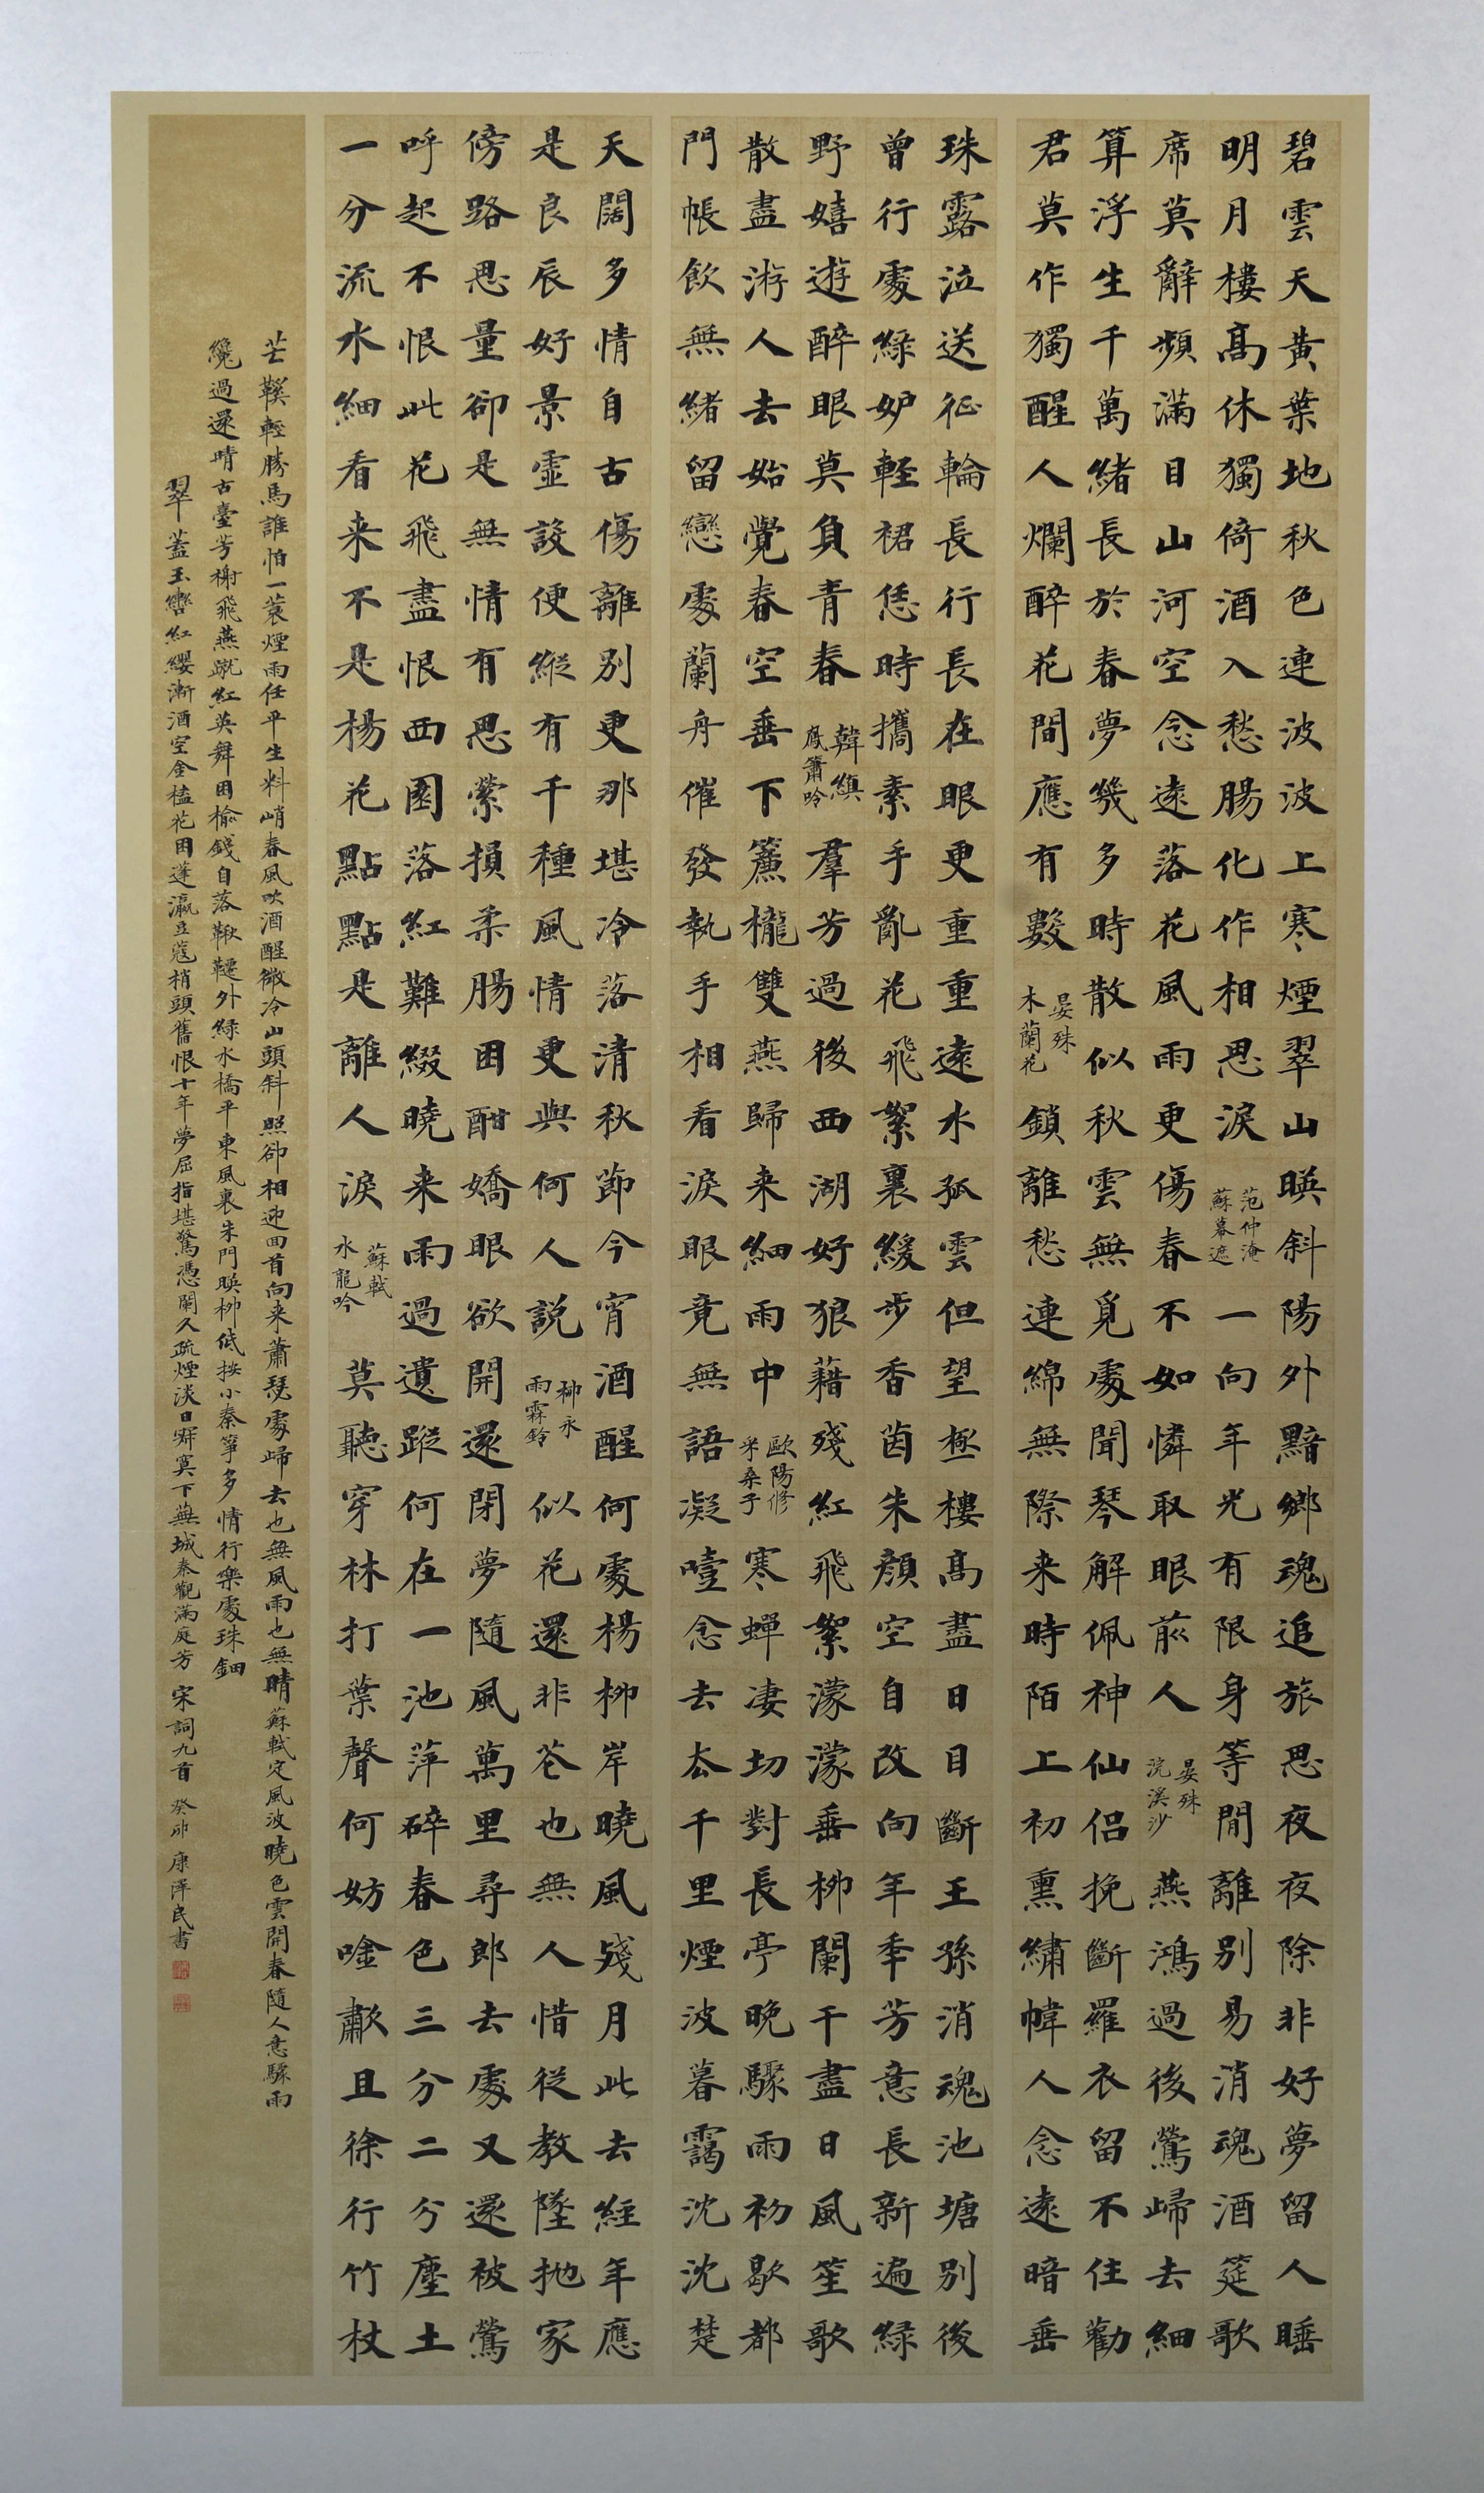 碧雲天黃葉地秋色連波波上寒煙翠山暎斜陽外黯鄉魂追旅思夜夜除非好夢留人睡
明月樓高休獨倚酒入愁腸化作相思淚 范仲淹 蘇幕遮 一向年光有限身等閒離別易消魂酒筵歌
席莫辭頻滿目山河空念遠落花風雨更傷春不如憐取眼前人 晏殊 浣溪沙 燕鴻過後鶯歸去細
算浮生千萬緒長於春夢幾多時散似秋雲無覓處聞琴解佩神仙侶挽斷羅衣留不住勸
君莫作獨醒人爛醉花間應有數 晏殊 木蘭花 鎖離愁連綿無際来時陌上初熏繡幃人念遠暗垂
珠露泣送征輪長行長在眼更重重遠水孤雲但望極樓高盡日目斷王孫消魂池塘別後
曾行處綠妒輕裙恁時攜素手亂花飛絮裏緩步香茵朱顏空自改向年年芳意長新遍綠
野嬉遊醉眼莫負青春 韓縝 鳳簫吟 羣芳過後西湖好狼藉殘紅飛絮濛濛垂柳闌干盡日風笙歌
散盡游人去始覺春空垂下簾櫳雙燕歸来細雨中 歐陽修 采桑子 寒蟬淒切對長亭晚驟雨初歇都
門帳飲無緒留戀處蘭舟催發執手相看淚眼竟無語凝噎念去去千里煙波暮靄沈沈楚
天闊多情自古傷離別更那堪冷落清秋節今宵酒醒何處楊柳岸曉風殘月此去經年應
是良辰好景虛設便縱有千種風情更與何人說 柳永 雨霖鈴 似花還非花也無人惜從教墜抛家
傍路思量卻是無情有思縈損柔腸困酣嬌眼欲開還閉夢隨風萬里尋郎去處又還被鶯
呼起不恨此花飛盡恨西園落紅難綴曉来雨過遺蹤何在一池萍碎春色三分二分塵土
一分流水細看来不是楊花點點是離人淚 蘇軾 水龍吟 莫聽穿林打葉聲何妨唫歗且徐行竹杖
芒鞵輕勝馬誰怕一蓑煙雨任平生料峭春風吹酒醒微冷山頭斜照卻相迎回首向来蕭瑟處歸去也無風雨也無晴 蘇軾定風波 曉色雲開春隨人意驟雨
纔過還晴古臺芳榭飛燕蹴紅英舞困榆錢自落鞦韆外綠水橋平東風裏朱門暎柳低按小秦箏多情行樂處珠鈿
翠蓋玉轡紅纓漸酒空金榼花困蓬瀛豆蔻梢頭舊恨十年夢屈指堪驚憑闌久疏煙淡日寂寞下蕪城秦觀滿庭芳 宋詞九首 癸卯 康澤民書